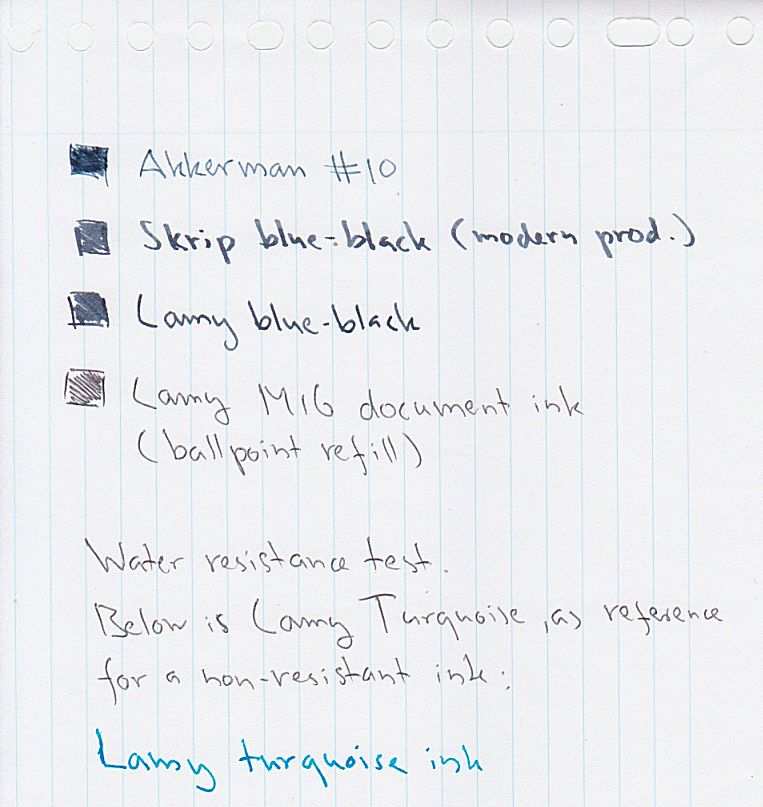 Akkerman #10
Skrip blue-black (modern prod.)
Lamy blue-black
Lamy M16 document ink
(ballpoint refill)
Water resistance test.
Below is Lamy Turquoise, as reference
for a non-resistant ink:
Lamy turquoise ink